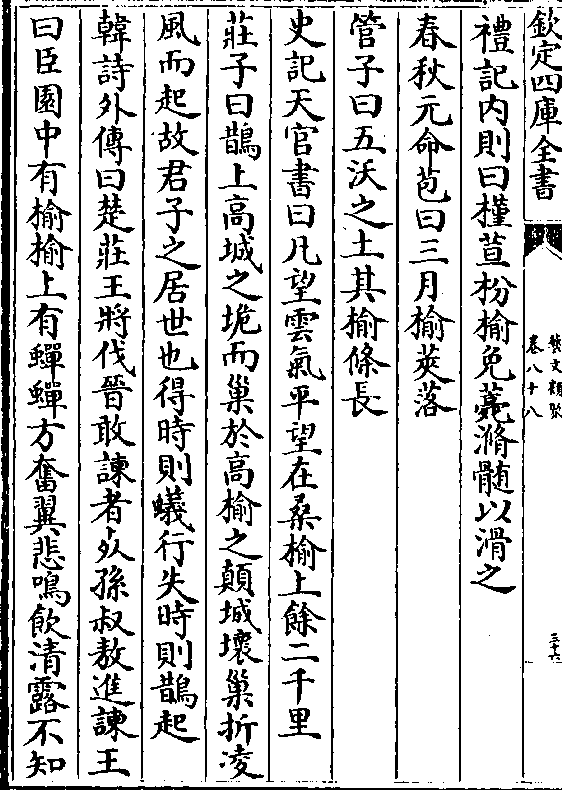 欽定四庫全書
藝文類聚
卷八十八
三十六
禮記內則曰槿荁枌榆免薧滫髄以滑之
春秋元命苞曰三月榆莢落
管子曰五沃之土其榆條長
史記天官書曰凡望雲氣平望在桑榆上餘二千里
莊子曰鵲上高城之垝而巢於高榆之顛城壞巢折凌
風而起故君子之居世也得時則蟻行失時則鵲起
韓詩外傳曰楚莊王將伐晉敢諫者死孫叔敖進諫王
曰臣園中有榆榆上有蟬蟬方奮翼悲鳴飲清露不知